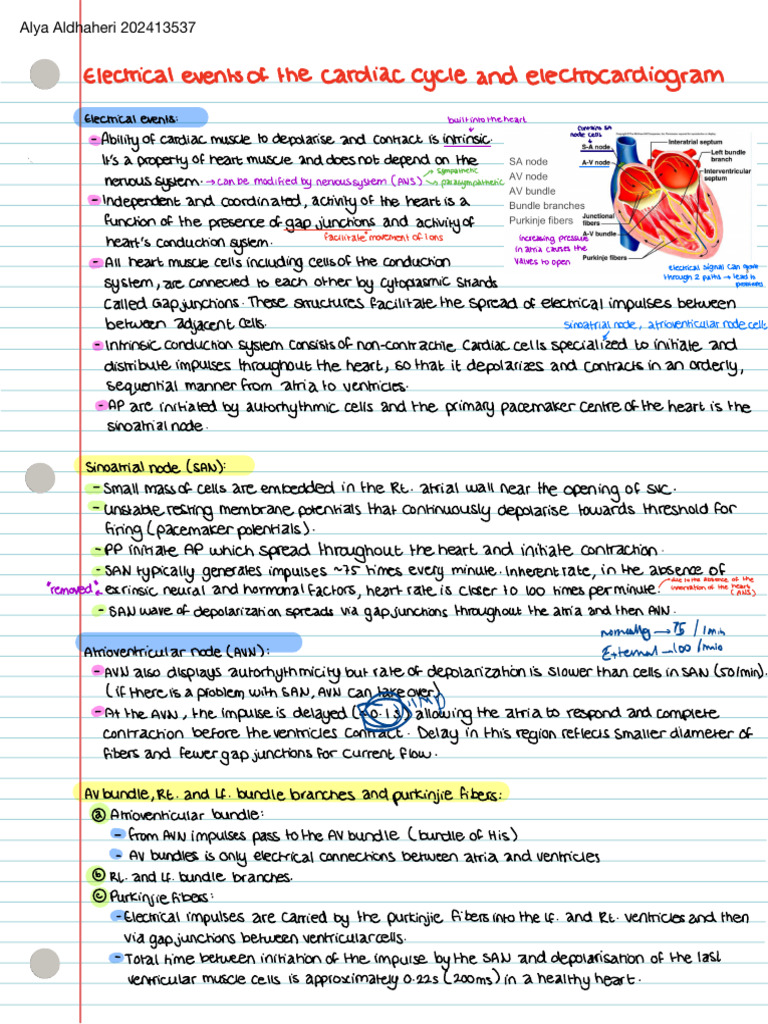 Alya Aldhaheri 202413537
Electrical events of the cardiac cycle and electrocardiogram
Electrical events:
built into the heart
- Ability of cardiac muscle to depolarise and contract is intrinsic.
It's a property of heart muscle and does not depend on the
nervous system. → can be modified by nervous system (ANS)
sympathetic
parasymphathetic
- Independent and coordinated, activity of the heart is a
function of the presence of gap junctions and activity of
facilitate movement of ions
heart's conduction system.
- All heart muscle cells including cells of the conduction
system, are connected to each other by cytoplasmic strands
called Gap junctions. These structures facilitate the spread of electrical impulses between
between adjacent cells.
SA node
AV node
AV bundle
Bundle branches
Purkinje fibers
increasing pressure
in atria causes the
valves to open
contains SA
node cells
S-A node
A-V node
Interatrial septum
Left bundle
branch
Interventricular
septum
Junctional
fibers
A-V bundle
Purkinje fibers
electrical signal can go
through 2 paths → lead to
sinoatrial node, atrioventricular node cells
- Intrinsic conduction system consists of non-contractile cardiac cells specialized to initiate and
distribute impulses throughout the heart, so that it depolarizes and contracts in an orderly,
sequential manner from atria to ventricles.
- AP are initiated by autorhythmic cells and the primary pacemaker centre of the heart is the
sinoatrial node.
Sinoatrial node (SAN):
- Small mass of cells are embedded in the Rt. atrial wall near the opening of SVC.
- Unstable resting membrane potentials that continuously depolarise towards threshold for
firing (pacemaker potentials).
- PP initiate AP which spread throughout the heart and initiate contraction.
- SAN typically generates impulses ~75 times every minute. Inherent rate, in the absence of
"removed" extrinsic neural and hormonal factors, heart rate is closer to 100 times per minute.
due to the absence of the
innervation of the heart
(ANS)
- SAN wave of depolarization spreads via gap junctions throughout the atria and then AVN.
normally → 75 / 1min
External → 100 / min
Atrioventricular node (AVN):
- AVN also displays autorhythmicity but rate of depolarization is slower than cells in SAN (50/min).
(if there is a problem with SAN, AVN can take over)
- At the AVN, the impulse is delayed (~0.1s) IMP allowing the atria to respond and complete
contraction before the ventricles contract. Delay in this region reflects smaller diameter of
fibers and fewer gap junctions for current flow.
AV bundle, Rt. and Lf. bundle branches and purkinjie fibers:
a Atrioventricular bundle:
- From AVN impulses pass to the AV bundle (bundle of His)
- AV bundles is only electrical connections between atria and ventricles
b Rt. and Lf. bundle branches.
c Purkinjie fibers:
- Electrical impulses are carried by the purkinjie fibers into the Lf. and Rt. ventricles and then
via gap junctions between ventricular cells.
- Total time between initiation of the impulse by the SAN and depolarisation of the last
ventricular muscle cells is approximately 0.22s (200ms) in a healthy heart.